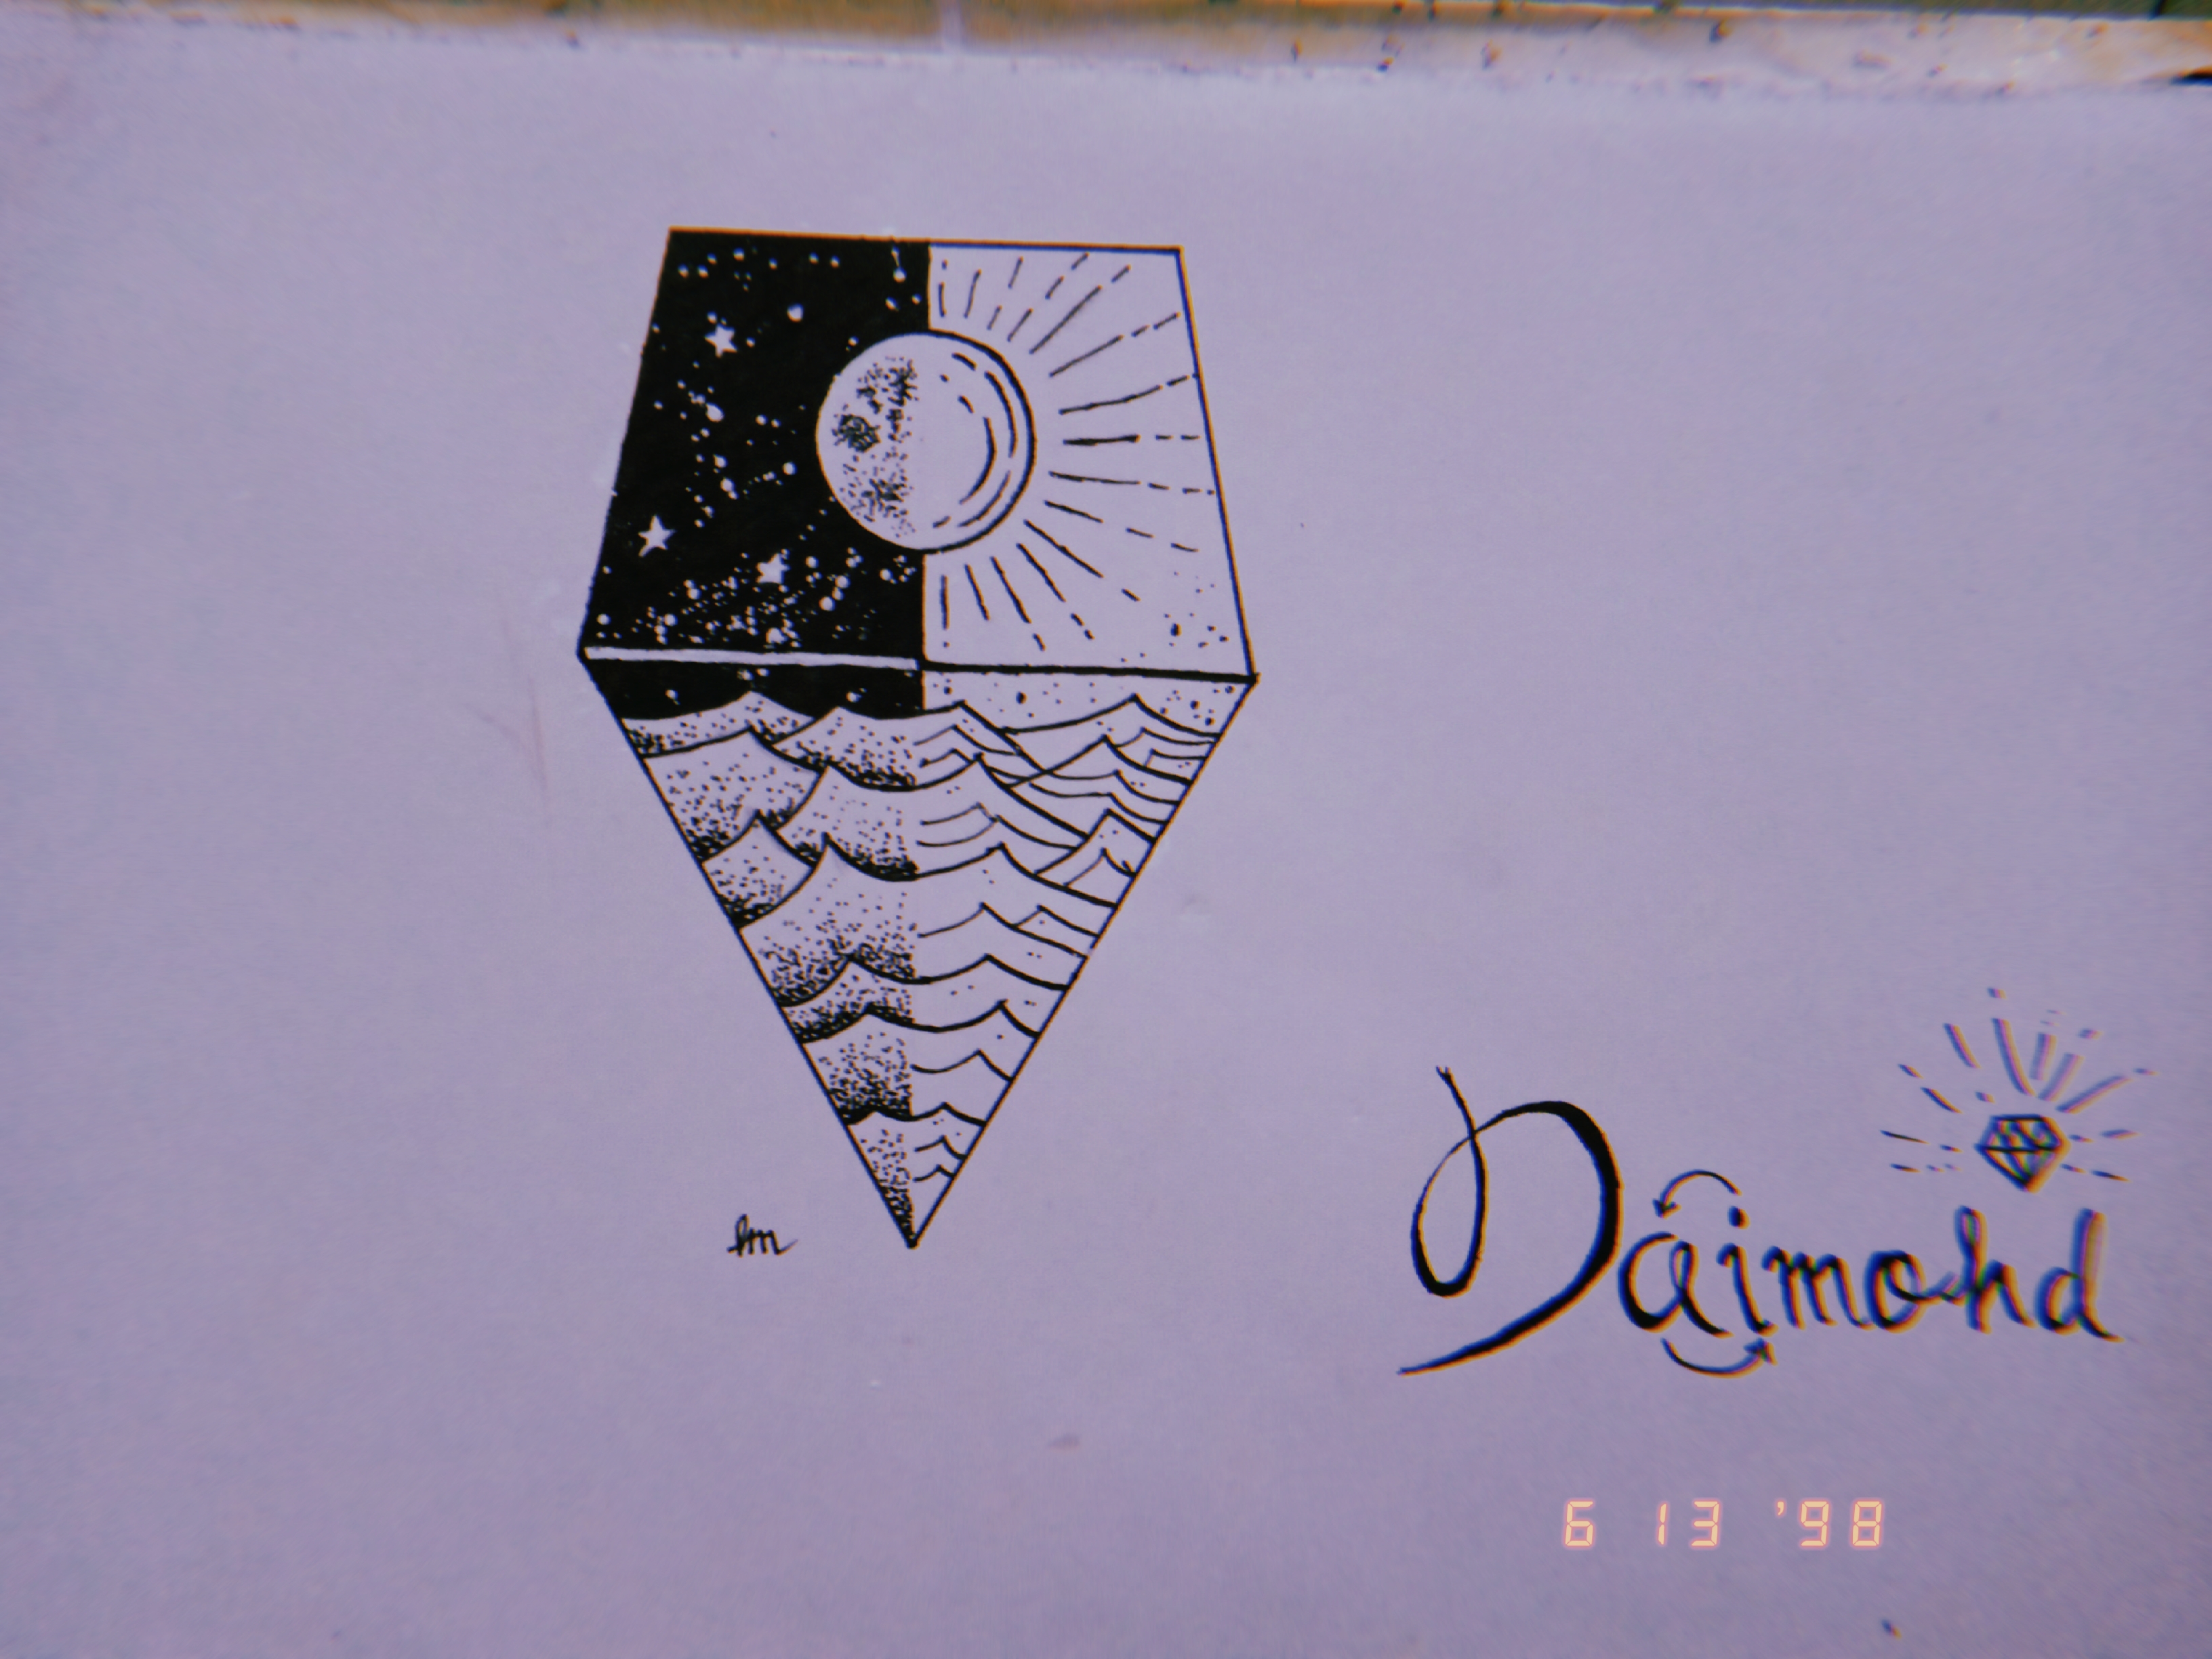 lm
Daimond
6 13 '98